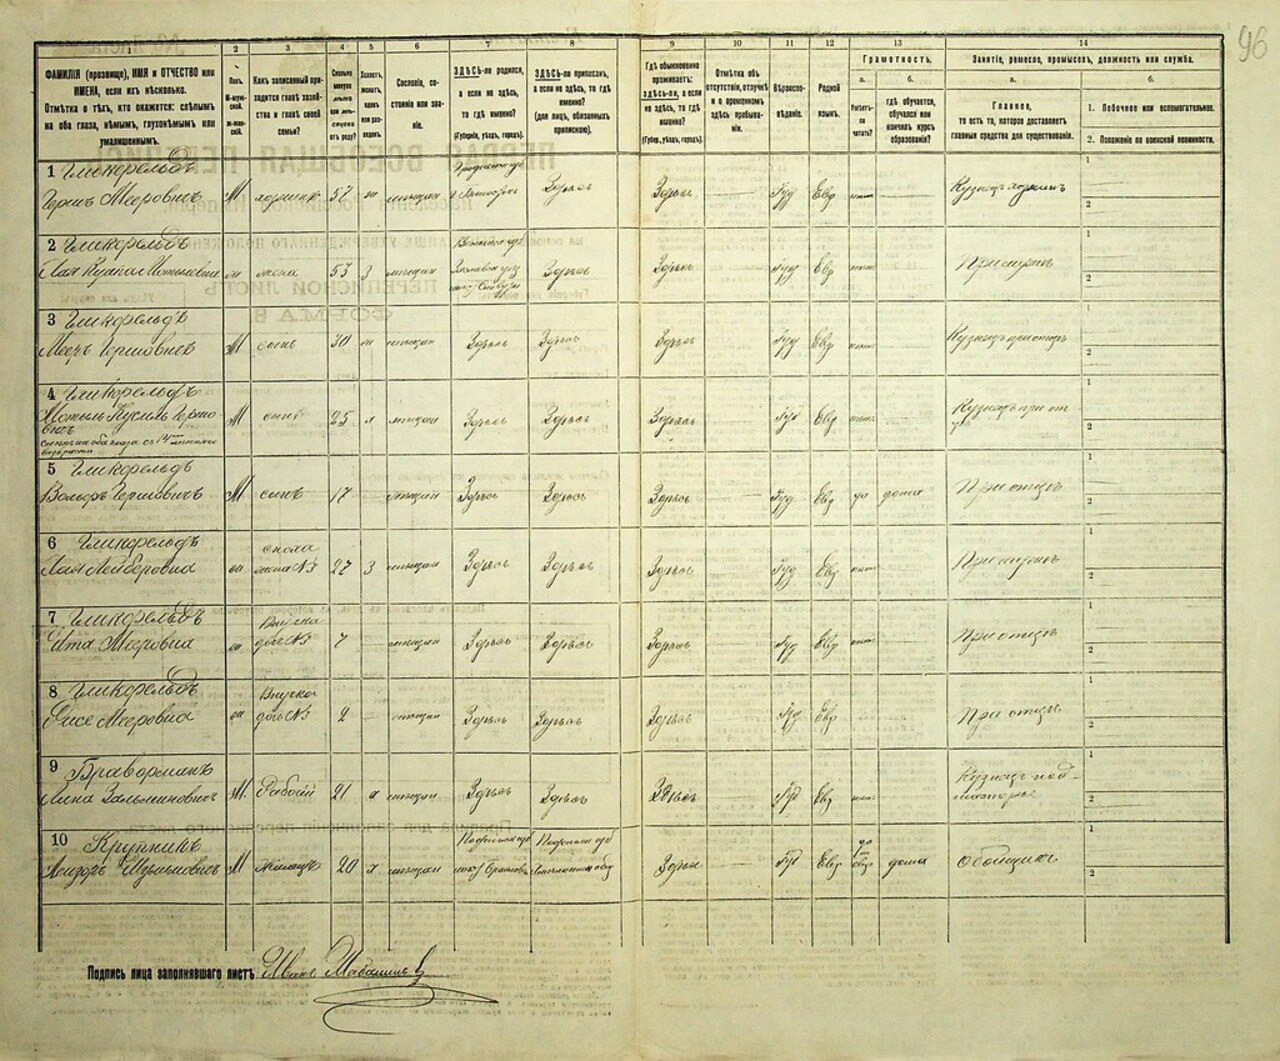 96
1 2 3 4 5 6 7 8 9 10 11 12 13 14
ФАМИЛІЯ (прозвище), ИМЯ и ОТЧЕСТВО или
ИМЕНА, если ихъ нѣсколько.
Отмѣтка о тѣхъ, кто окажется: слѣпымъ
на оба глаза, нѣмымъ, глухонѣмымъ или
умалишеннымъ.
Полъ.
М-мужской.
Ж-женскій.
Какъ записанный приходится главѣ хозяйства и главѣ своей семьи?
Сколько минуло лѣтъ или мѣсяцевъ отъ роду?
Холостъ, женатъ, вдовъ или разведенъ.
Сословіе, состояніе или званіе.
ЗДѢСЬ-ли родился,
а если не здѣсь,
то гдѣ именно?
(Губернія, уѣздъ, городъ).
ЗДѢСЬ-ли приписанъ,
а если не здѣсь, то гдѣ
именно?
(для лицъ, обязанныхъ
припискою).
Гдѣ обыкновенно
проживаетъ:
здѣсь-ли, а если
не здѣсь, то гдѣ
именно?
(Губер., уѣздъ, городъ).
Отмѣтка объ
отсутствіи, отлучкѣ
и о временномъ
здѣсь пребываніи.
Вѣроисповѣданіе.
Родной
языкъ.
Грамотность.
а.
Умѣетъ-ли читать?
б.
гдѣ обучается,
обучался или
кончилъ курсъ
образованія?
Занятіе, ремесло, промыселъ, должность или служба.
а.
Главное,
то есть то, которое доставляетъ
главныя средства для существованія.
б.
1. Побочное или вспомогательное.
2. Положеніе по воинской повинности.
1 Гликфельдъ
Гершъ Мееровичъ М хозяинъ 57 ж мѣщан Здѣсь Здѣсь Іуд Евр нѣтъ Кузнецъ хозяинъ
2 Гликфельдъ
жена 53 з мѣщан Здѣсь Здѣсь Іуд Евр нѣтъ При мужѣ
3 Гликфельдъ
Мееръ Гершовичъ М сынъ 30 ж мѣщан Здѣсь Здѣсь Здѣсь Іуд Евр нѣтъ Кузнецъ при отцѣ
4 Гликфельдъ
М сынъ 25 х мѣщан Здѣсь Здѣсь Здѣсь Іуд Евр нѣтъ Кузнецъ при отцѣ
5 Гликфельдъ
Вольфъ Гершовичъ М сынъ 17 мѣщан Здѣсь Здѣсь Здѣсь Іуд Евр да дома При отцѣ
6 Гликфельдъ
Хая Лейберовна ж сноха жена №3 27 з мѣщан Здѣсь Здѣсь Здѣсь Іуд Евр нѣтъ При мужѣ
7 Гликфельдъ
Ита Мееровна ж Внучка дочь №3 7 мѣщан Здѣсь Здѣсь Здѣсь Іуд Евр нѣтъ При отцѣ
8 Гликфельдъ
Мееровна ж Внучка дочь №3 2 мѣщан Здѣсь Здѣсь Здѣсь Іуд Евр При отцѣ
9 Браверманъ
М. Рабочій 21 х мѣщан Здѣсь Здѣсь Здѣсь Іуд Евр нѣтъ Кузнецъ
10 Крупникъ
М жилецъ 20 х мѣщан Здѣсь Іуд Евр да евр дома Обойщикъ
Подпись лица заполнявшаго листъ Иванъ